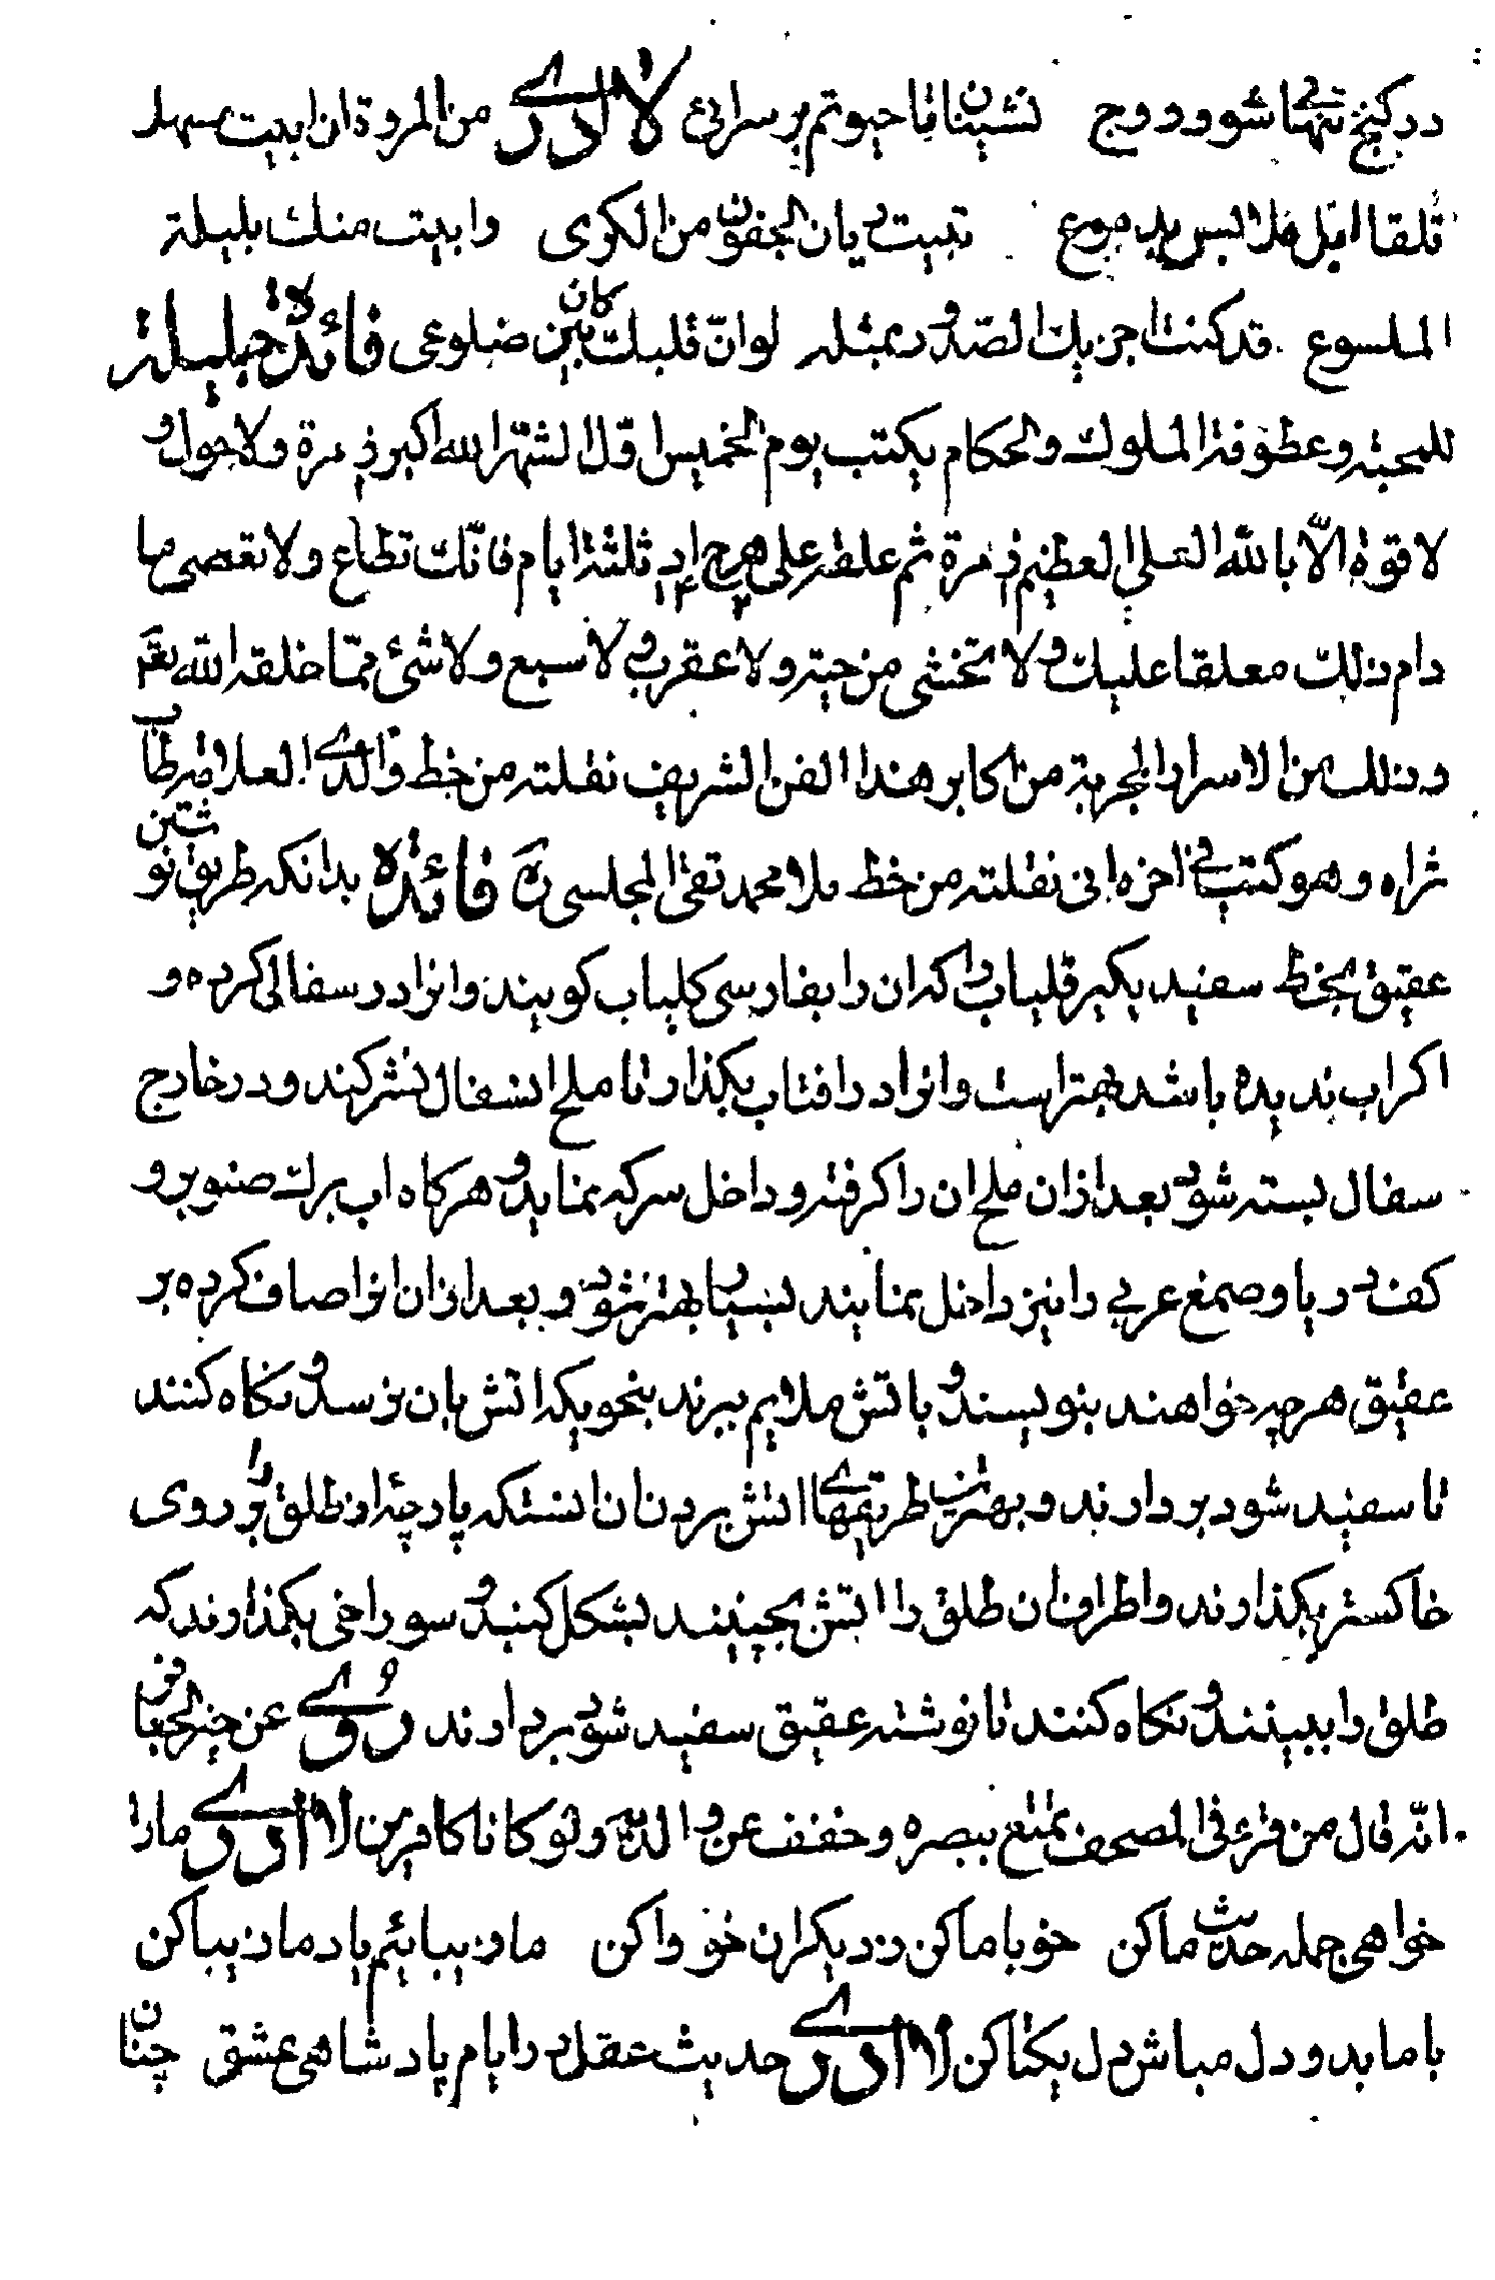 در کنج تنهائی شو و و وج نشین تا با حیوتم بر سرائی لا ادری من المروة ان ابیت مسهد
قلقا ابل ملابسی بدموع تبیت ریان الجفون من الکری وابیت منك بلیلة
الملسوع قد کنت اجزیك الصدود بمثله لو انّ قلبك کان بین ضلوعی فائدة جلیلة
للمحبة وعطوفة الملوك والحکام یکتب یوم الخمیس اوّل الشهر الله اکبر مرة ولا حول و
لا قوة الّا بالله العلی العظیم مرة ثم علقه علی ثلثة ایام فانّك تطاع ولا تعصی ما
دام ذلك معلقا علیك ولا تخشی من حیة ولا عقرب ولا سبع ولا شئ ممّا خلقه الله تعم
وذلك من الاسرار المجربة من اکابر هذا الفن الشریف نقلته من خط والدی العلامة طاب
ثراه وهو کتب فی اخره انی نقلته من خط ملا محمد تقی المجلسی ره فائده بدانکه طریق نوشتن
عقیق بخط سفید بگیر قلیاب را که ان را بفارسی کلیاب کویند وانرا در سفالی کرده و
اکر اب ندیده باشد بهتر است وانرا در افتاب بکذار تا ملح از سفال نشر کند ودر خارج
سفال بسته شود بعد از ان ملح ان را کرفته و داخل سرکه بنماید و هرکاه اب برك صنوبر و
کف دریا وصمغ عربی را نیز داخل نمایند بسیار بهتر شود و بعد از ان انرا صاف کرده بر
عقیق هر چه خواهند بنویسند و باتش ملایم ببرند بنحویکه اتش بان نرسد و نکاه کنند
تا سفید شود بردارند و بهترین طریقهای اتش بردن ان انستکه پارچهٔ از طلق را بر روی
خاکستر بکذارند واطراف ان طلق را اتش بچینند بشکل کنبد و سوراخی بکذارند که
طلق را ببینند و نکاه کنند تا نوشته عقیق سفید شود بردارند روی عن جعفر
انّه قال من قرء فی المصحف یمتع ببصره وخفف عن والدیه ولو کانا کافرین لا ادری مارا
خواهی جمله حدیث ما کن خو با ما کن ز دیکران خو وا کن ما زیبائیم یاد ما زیبا کن
با ما بدو دل مباش دل یکتا کن لا ادری حدیث عقل در ایام پادشاهی عشق چنان